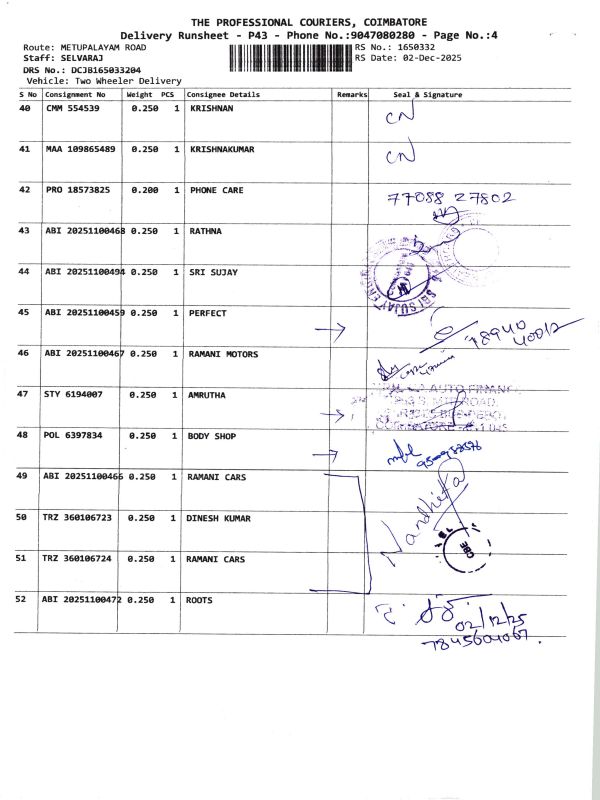 THE PROFESSIONAL COURIERS, COIMBATORE
Delivery Runsheet - P43 - Phone No.:9047080280 - Page No.:4
Route: METUPALAYAM ROAD RS No.: 1650332
Staff: SELVARAJ RS Date: 02-Dec-2025
DRS No.: DCJB165033204
Vehicle: Two Wheeler Delivery
S No Consignment No Weight PCS Consignee Details Remarks Seal & Signature
40 CMM 554539 0.250 1 KRISHNAN CN
41 MAA 109865489 0.250 1 KRISHNAKUMAR CN
42 PRO 18573825 0.200 1 PHONE CARE 77088 27802
43 ABI 20251100468 0.250 1 RATHNA
44 ABI 20251100494 0.250 1 SRI SUJAY SRI SUJAY
45 ABI 20251100459 0.250 1 PERFECT → 78940
40012
46 ABI 20251100467 0.250 1 RAMANI MOTORS
47 STY 6194007 0.250 1 AMRUTHA → AUTO FINANCE
48 POL 6397834 0.250 1 BODY SHOP →
49 ABI 20251100466 0.250 1 RAMANI CARS Nandhita
50 TRZ 360106723 0.250 1 DINESH KUMAR
51 TRZ 360106724 0.250 1 RAMANI CARS CBE
52 ABI 20251100472 0.250 1 ROOTS
02/12/25
7845604067.